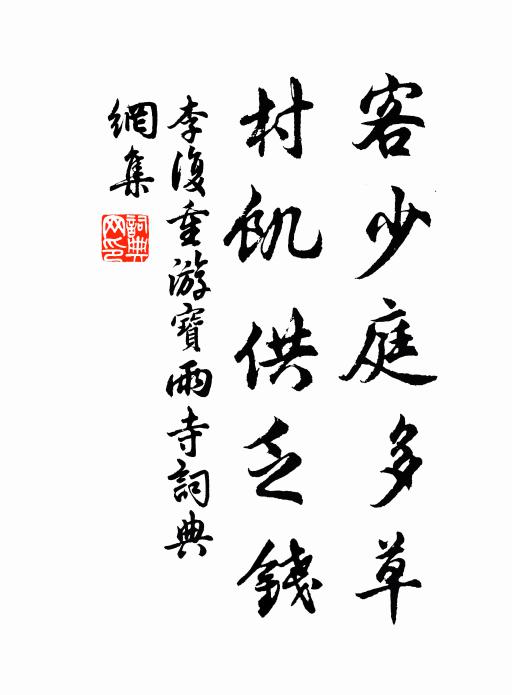 客少庭多草
村飢供乏錢
李復重游寶雨寺詞典
網集
詞典
網印